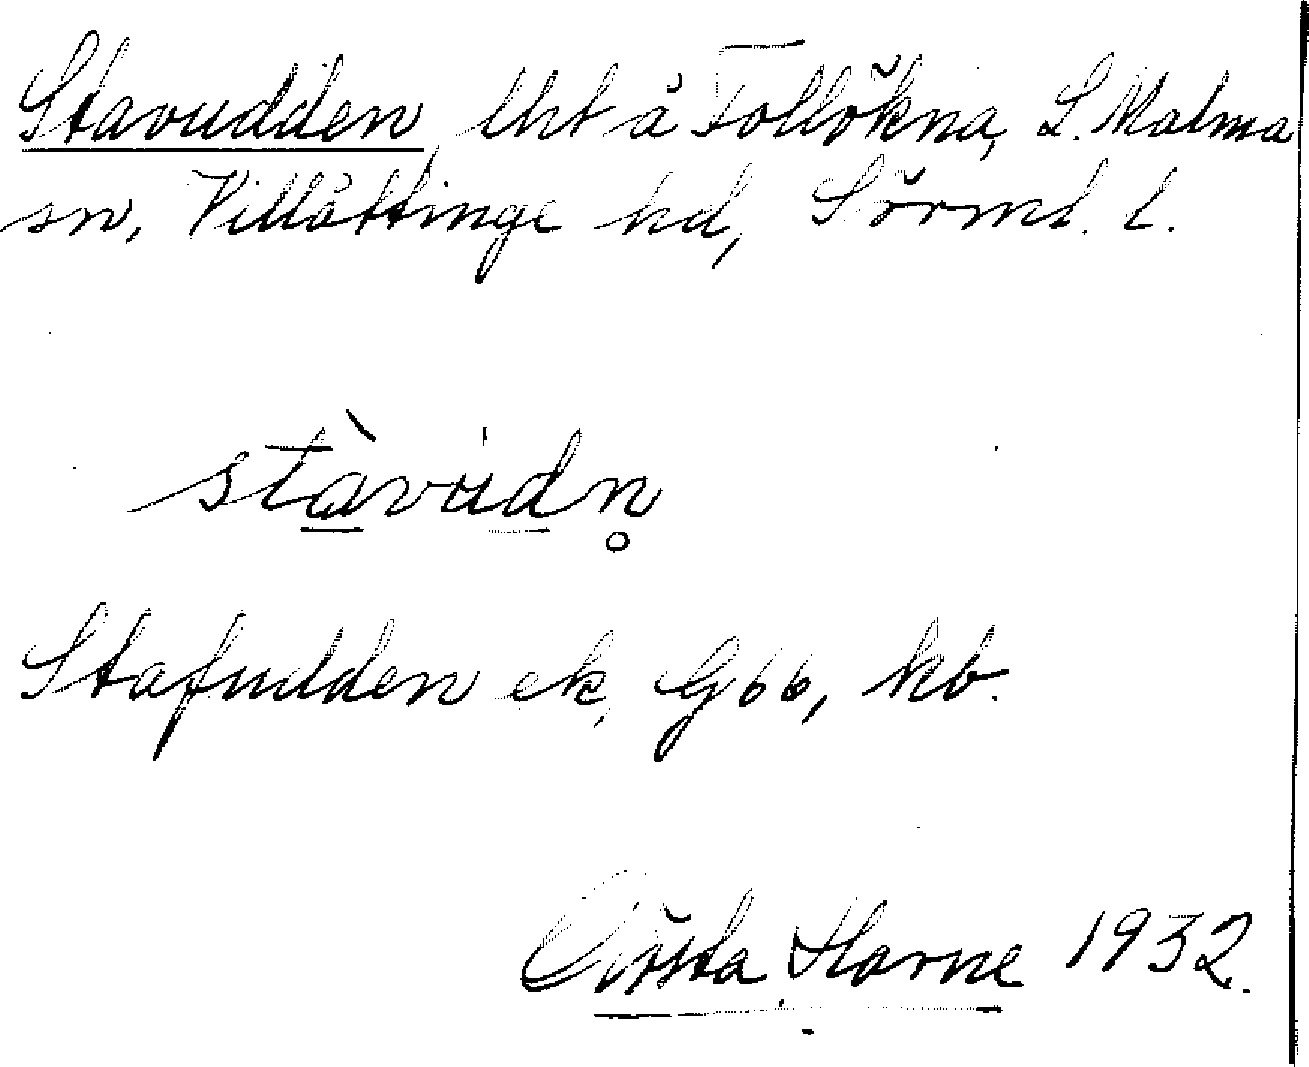 Stavudden, lht å Follökna, L. Malma
sn, Villåttinge hd, Sörml. l.
stàvu̇dn̥
Stafudden ek, G66, kb.
Gösta Harne 1932.